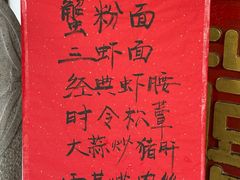 蟹粉面
三虾面
经典虾腰
时令松蕈
大蒜炒猪肝